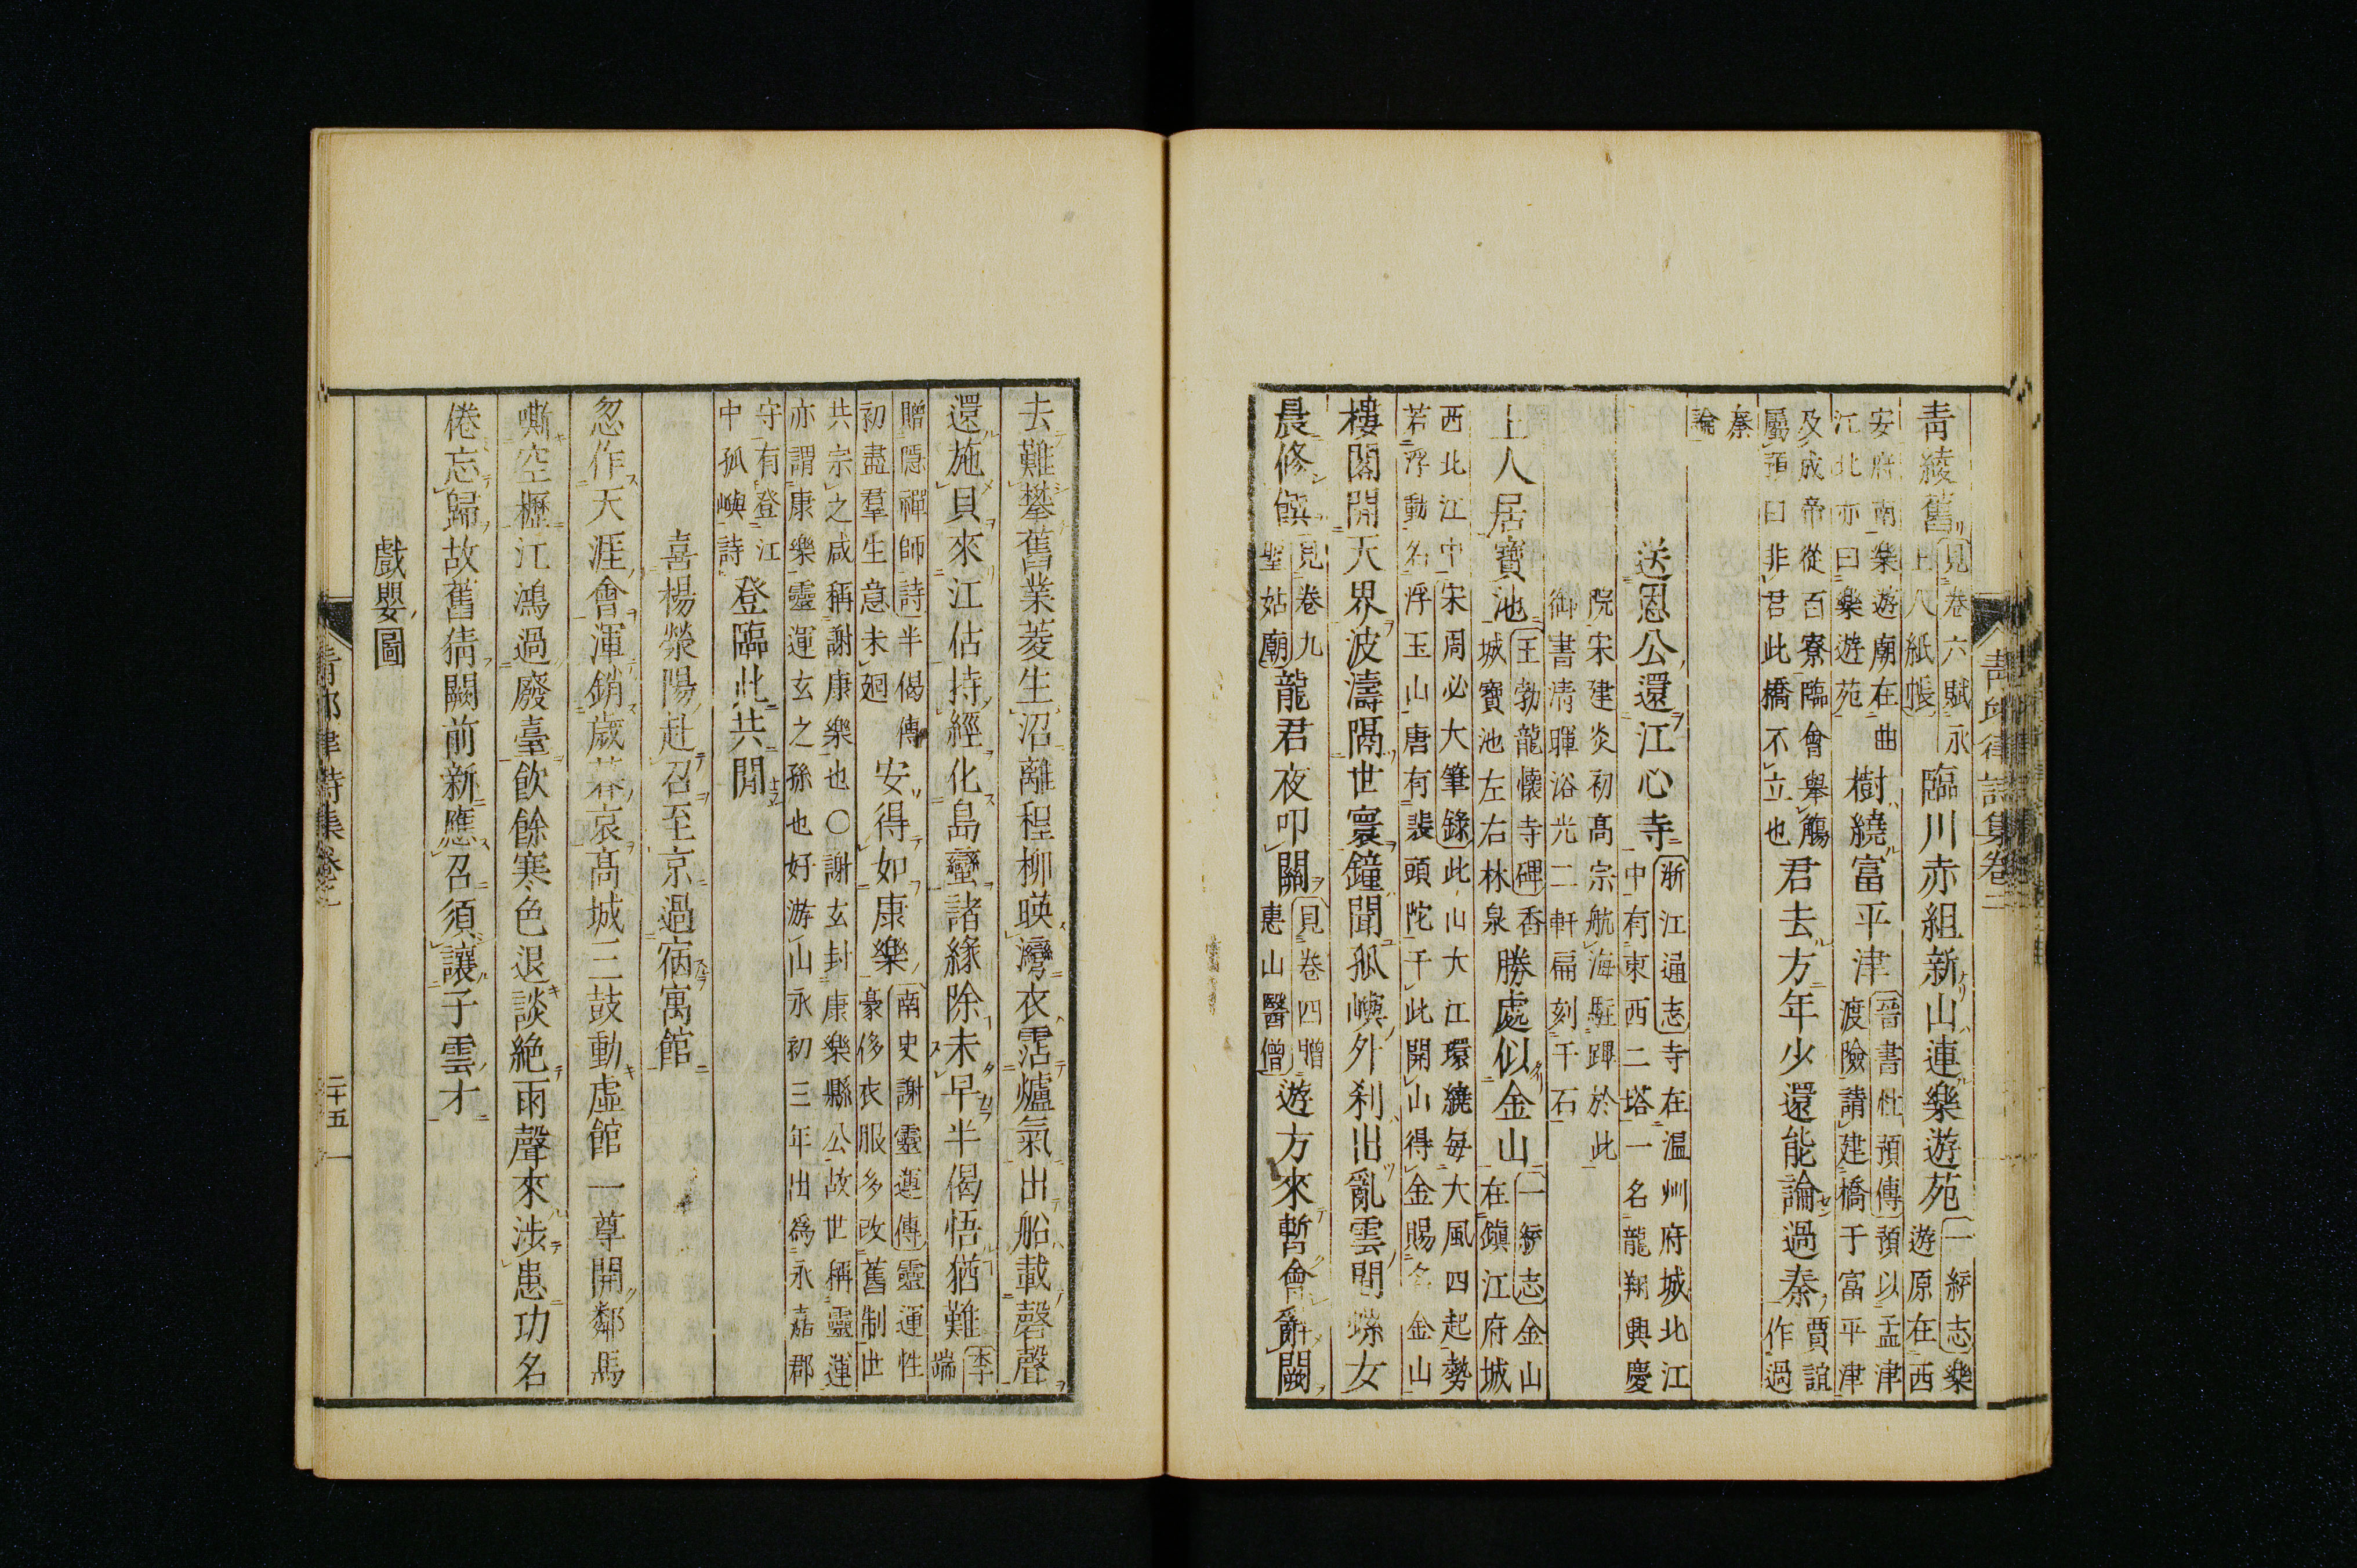 青綾舊見卷六賦永日八紙帳臨川赤組新山連樂遊苑一綂志樂遊原在西
安府南樂遊廟在曲江北亦曰樂遊苑樹繞富平津晉書杜預傳預以孟津渡險請建橋于富平津
及成帝從百寮臨會舉觴屬預曰非君此橋不立也君去方年少還能論過秦賈誼作過
秦論
送恩公還江心寺浙江通志寺在温州府城北江中有東西二塔一名龍翔興慶
院宋建炎初高宗航海駐蹕於此御書清暉浴光二軒扁刻于石
上人居寶池王勃龍懷寺碑香城寶池左右林泉勝處似金山一綂志金山在鎮江府城
西北江中宋周必大筆錄此山大江環繞每大風四起勢若浮動名浮玉山唐有裴頭陀于此開山得金賜名金山
樓閣開天界波濤隔世寰鐘聞孤嶼外刹出亂雲間螺女
晨修饌見卷九聖姑廟龍君夜叩關見卷四贈惠山醫僧遊方來暫會辭闕
青邱律詩集卷二
去難攀舊業菱生沼離程柳暎灣衣霑爐氣出船載磬聲
還施貝來江估持經化島蠻諸緣除未早半偈悟猶難李端
贈隱禪師詩半偈傳初盡羣生意未廻安得如康樂南史謝靈運傳靈運性豪侈衣服多改舊制世
共宗之咸稱謝康樂也〇謝玄封康樂縣公故世稱靈運亦謂康樂靈運玄之孫也好游山永初三年出爲永嘉郡
守有登江中孤嶼詩登臨此共閒
喜楊滎陽赴召至京過宿寓館
忽作天涯會渾銷歲暮哀高城三鼓動虛館一尊開鄰馬
嘶空櫪江鴻過廢臺飲餘寒色退談絶雨聲來涉患功名
倦忘歸故舊猜闕前新應召須讓子雲才
戲嬰圖
青邱律詩集卷二
二十五